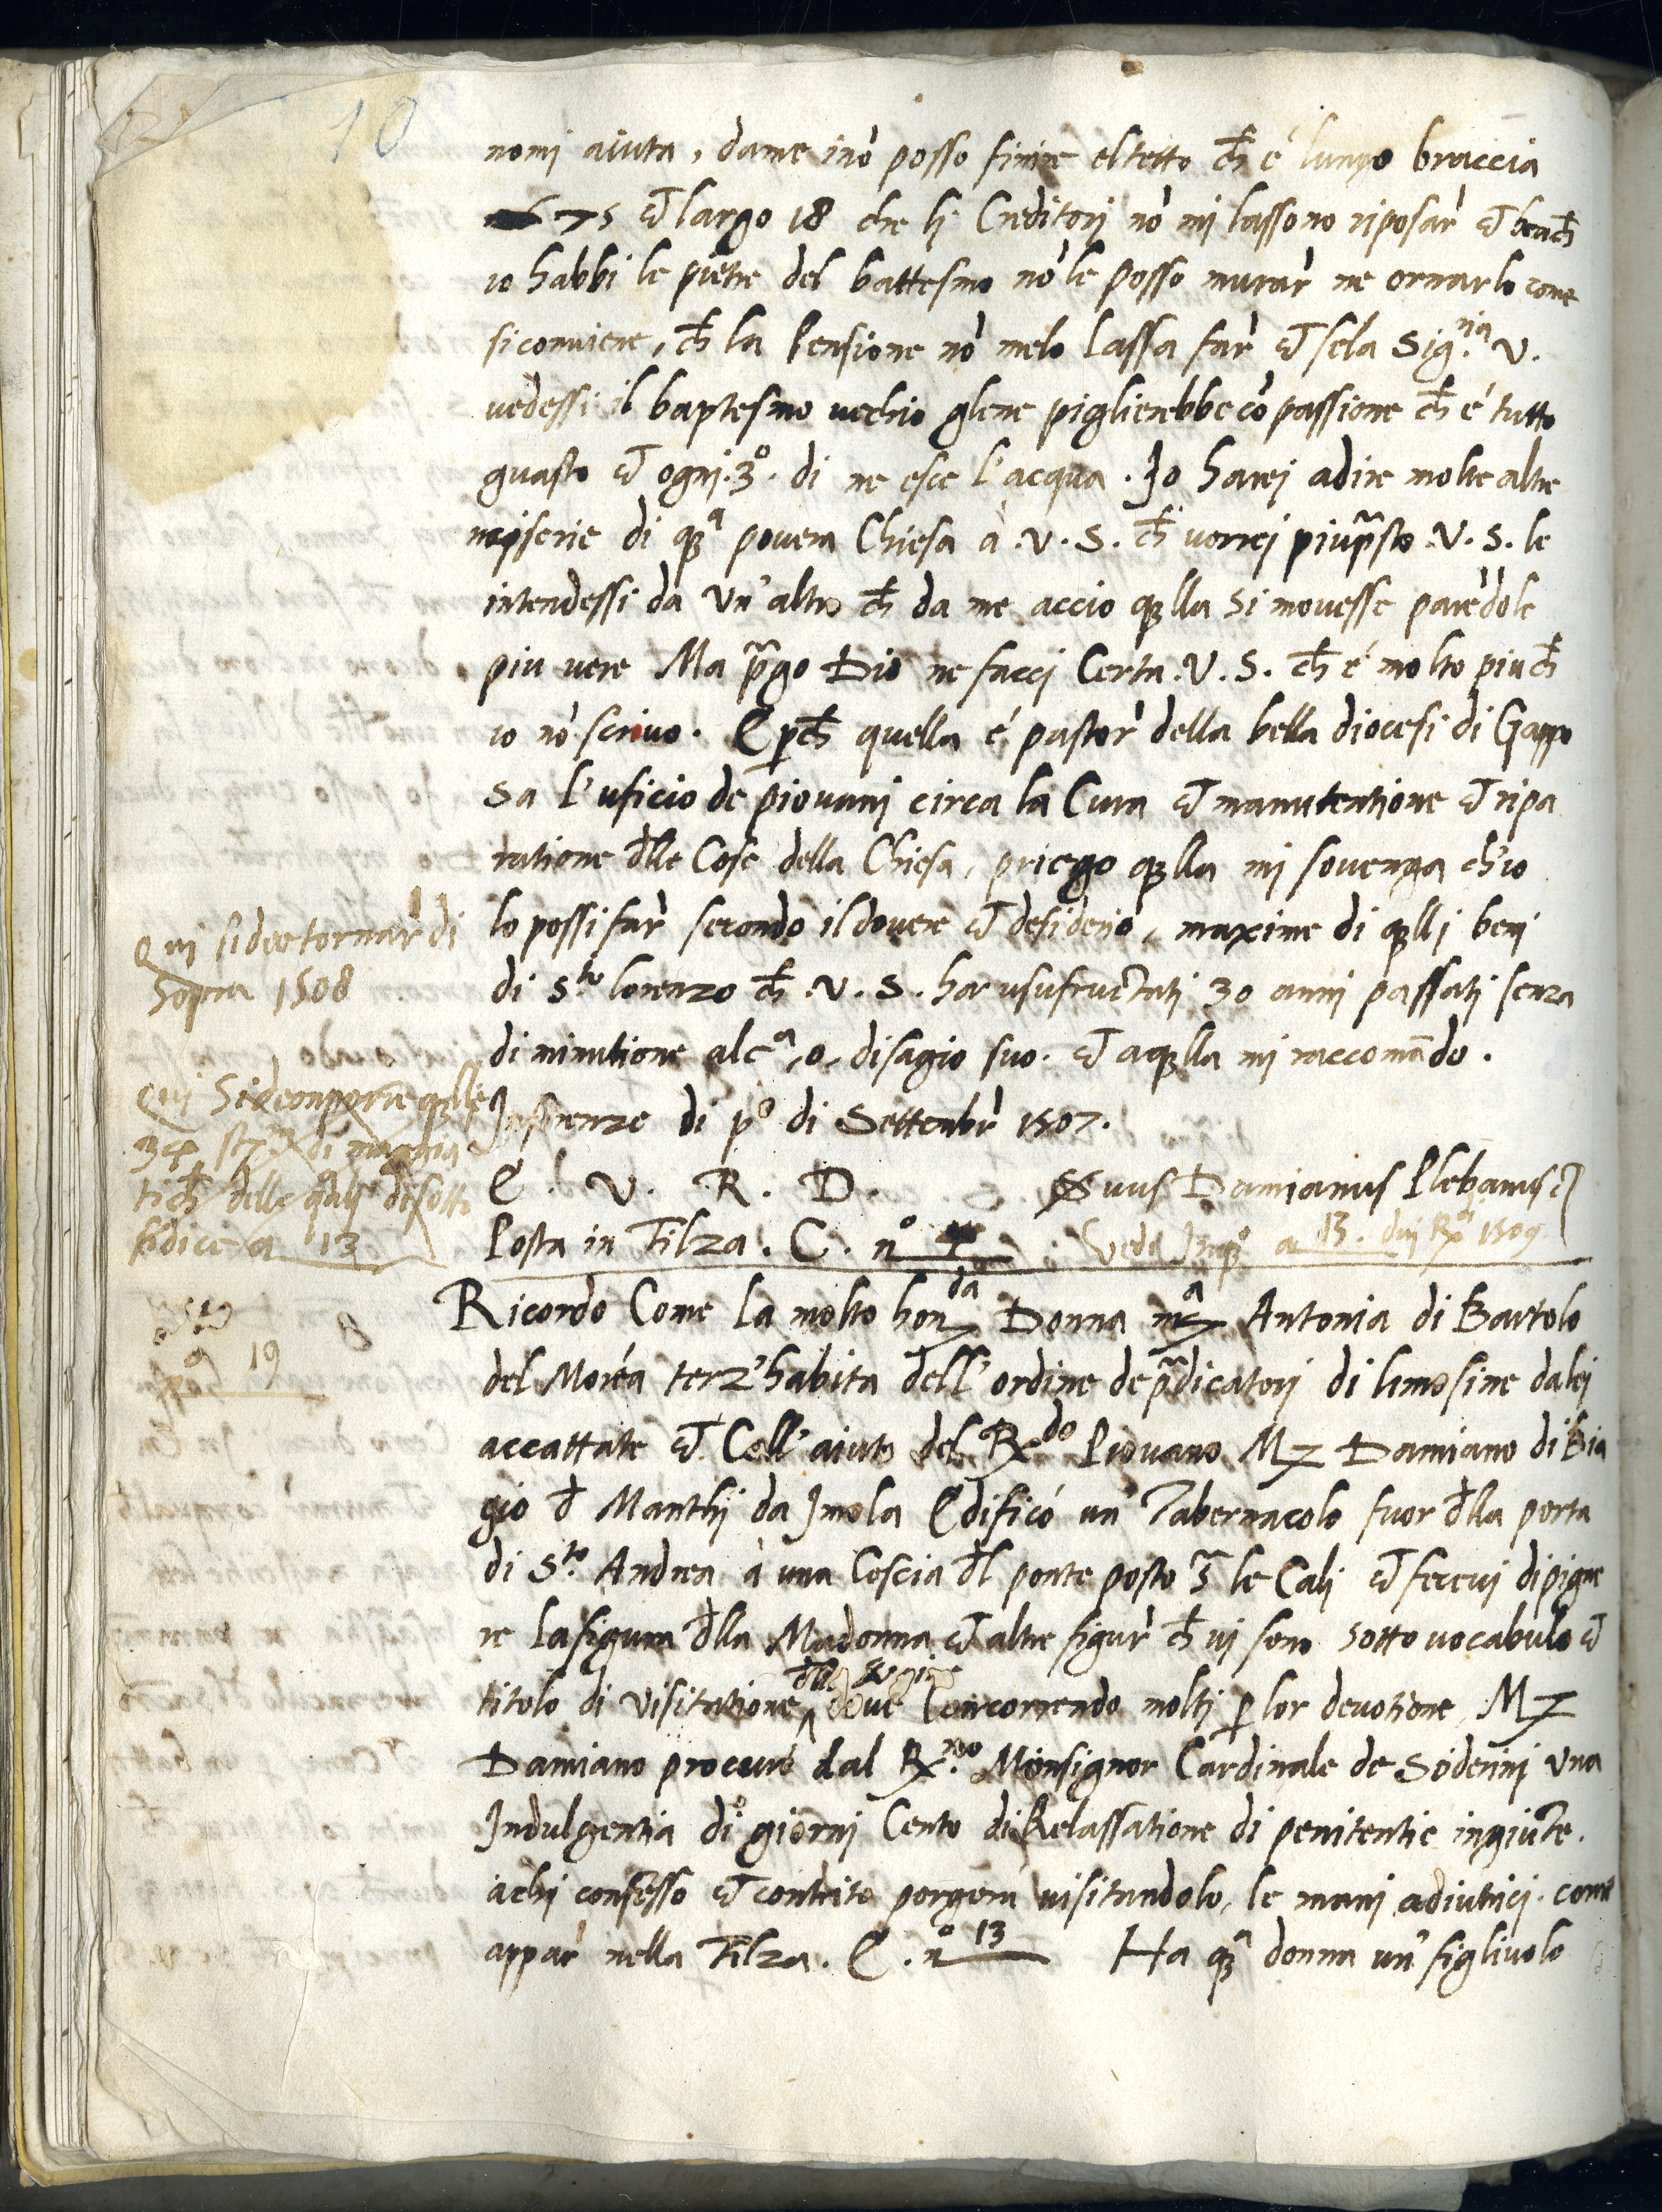 10
nomi aiuta, dame inò posso finire el tetto ch̃ é lungo braccia
75 & largo 18 che li Creditorj nò mi lassono riposar̀ & bench̃
io habbi le pietre del battesmo nò le posso murar̀ ne ornarlo come
si conviene, ch̃ la Pensione nò melo lassa far̀ & se la Sig.ria V.
vedessi il baptesmo vechio glene piglierebbe cò passione ch̃ é tutto
guasto & ognj .3º. di ne esce l'acqua. Io harej a dire molte altre
miserie di q̃sta povera Chiesa à .V.S. ch̃ vorrej piup̃sto .V.S. le
intendessi da un'altro ch̃ da me accio q̃lla si movesse parẽdole
piu vere Ma p̃go Dio ne faccj Certa .V.S. ch̃ é molto piu ch̃
io nò scrivo. E p̱ch̃ quella é pastor̀ della bella diocesi di Gappo
Sa l'uficio de piovanj circa la Cura & manutentione & ripa
ratione d̃lle Cose della Chiesa, priego q̃lla mi sovenga ch'io
lo possi far̀ secondo il dovere & desiderio, maxime di q̃llj beni
di S.to lorenzo ch̃ .V.S. ha usufructatj 30 anni passatj senza
diminutione alc.a, o, disagio suo. & a q̃lla mi raccomãdo.
In firenze di pº di Settẽbr̀ 1507.
E. V. R. D. Suus Damianus Plebanus
Posta in Filza. C. nº 4 Vedi a 13. 1509
Qui si dee tornar̀ di
Sopra 1508
Qui Si de q̃lle
34 di
tich̃ delle q̃ali di sotto
si dice a 13
a 19
Ricordo Come la molto hon.da Donna m.a Antonia di Bartolo
del Moréa terz'habita dell'ordine de p̃dicatorj di limosine da lei
accattate & Coll'aiuto del R.do Piovano M. Damiano di Bia
gio d̃ Manthj da Imola Edificó un Tabernacolo fuor d̃lla porta
di S.to Andrea à una Coscia d̃l ponte posto le Calj & fecevi dipigne
re la figura d̃lla Madonna & altre figur̀ ch̃ vi sono sotto vocabulo &
titolo di visitatione d̃lla Vergine dove Concorrendo molti p̱ lor devotione M.
Damiano procuró dal R.mo Monsignor Cardinale de Soderinj una
Indulgentia di giornj Cento di Relassatione di penitentie ingiũte.
a chi confesso & contrito porgerá visitandolo, le mani adiutricj. come
appar̀ nella Filza. E. nº 13 Ha q̃sta donna un' figliuolo